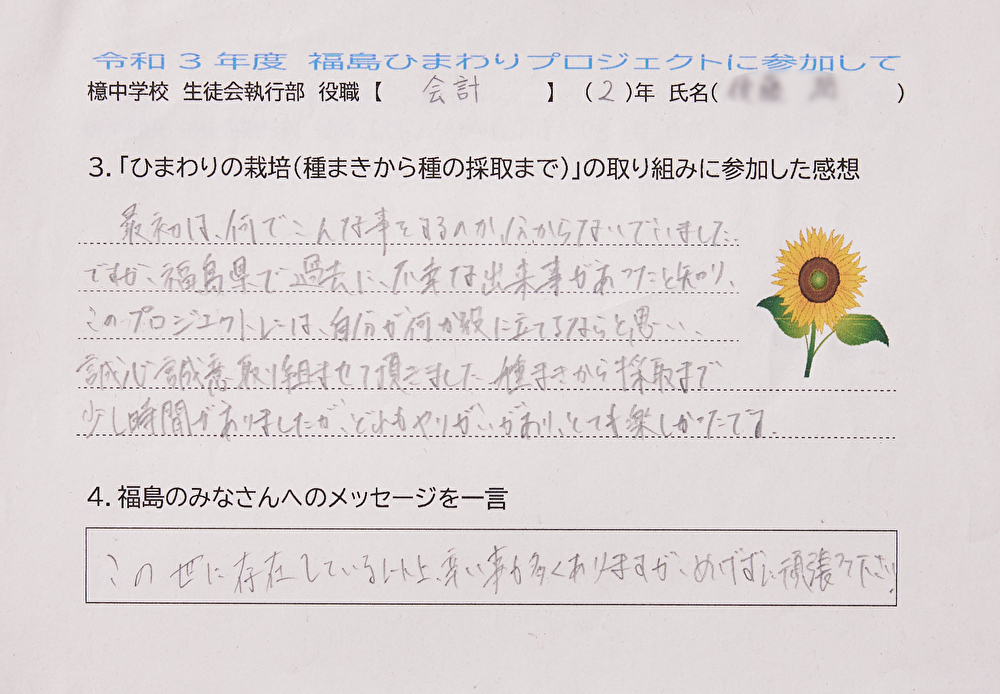 令和3年度 福島ひまわりプロジェクトに参加して
檍中学校 生徒会執行部 役職【 会計 】 (2)年 氏名( )
3.「ひまわりの栽培(種まきから種の採取まで)」の取り組みに参加した感想
最初は、何でこんな事をするのか、分からないでいました。
ですが、福島県で過去に、不幸な出来事があったと知り、
このプロジェクトには、自分が何か役に立てるならと思い、
誠心誠意取り組ませて頂きました。種まきから採取まで
少し時間がありましたが、どれもやりがいがあり、とても楽しかったです。
4.福島のみなさんへのメッセージを一言
この世に存在している以上、辛い事も多くありますが、めげずに頑張って下さい。